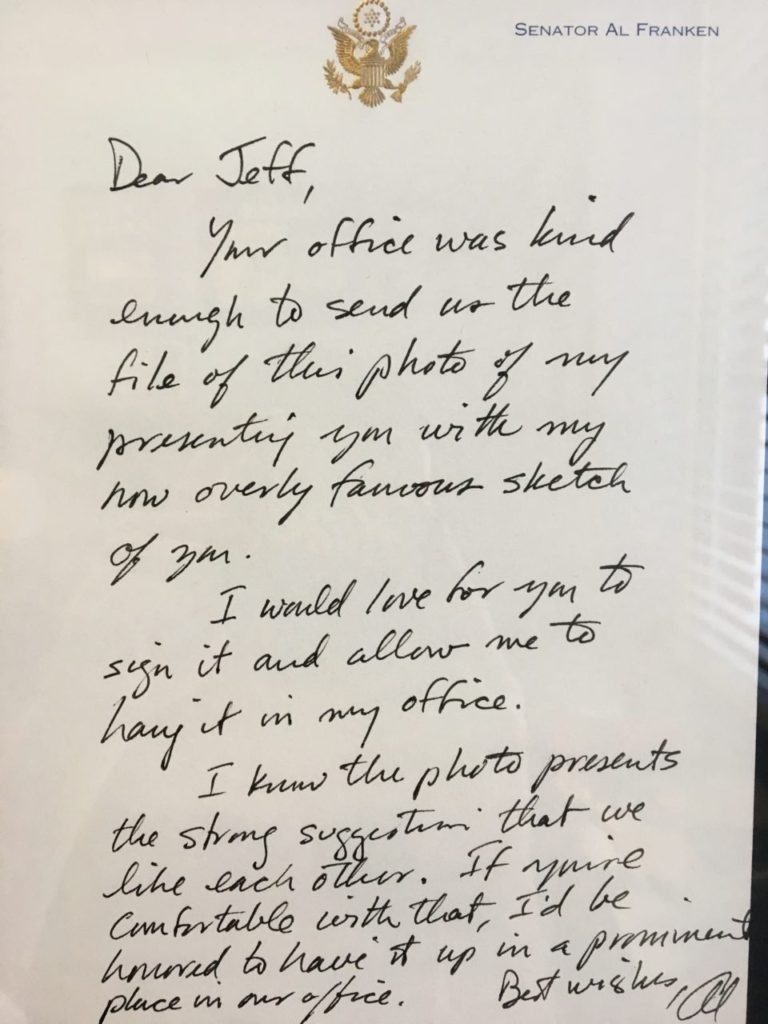 SENATOR AL FRANKEN
Dear Jeff,
Your office was kind
enough to send us the
file of this photo of my
presenting you with my
now overly famous sketch
of you.
I would love for you to
sign it and allow me to
hang it in my office.
I know the photo presents
the strong suggestion that we
like each other. If you're
comfortable with that, I'd be
honored to have it up in a prominent
place in our office. Best wishes, Al